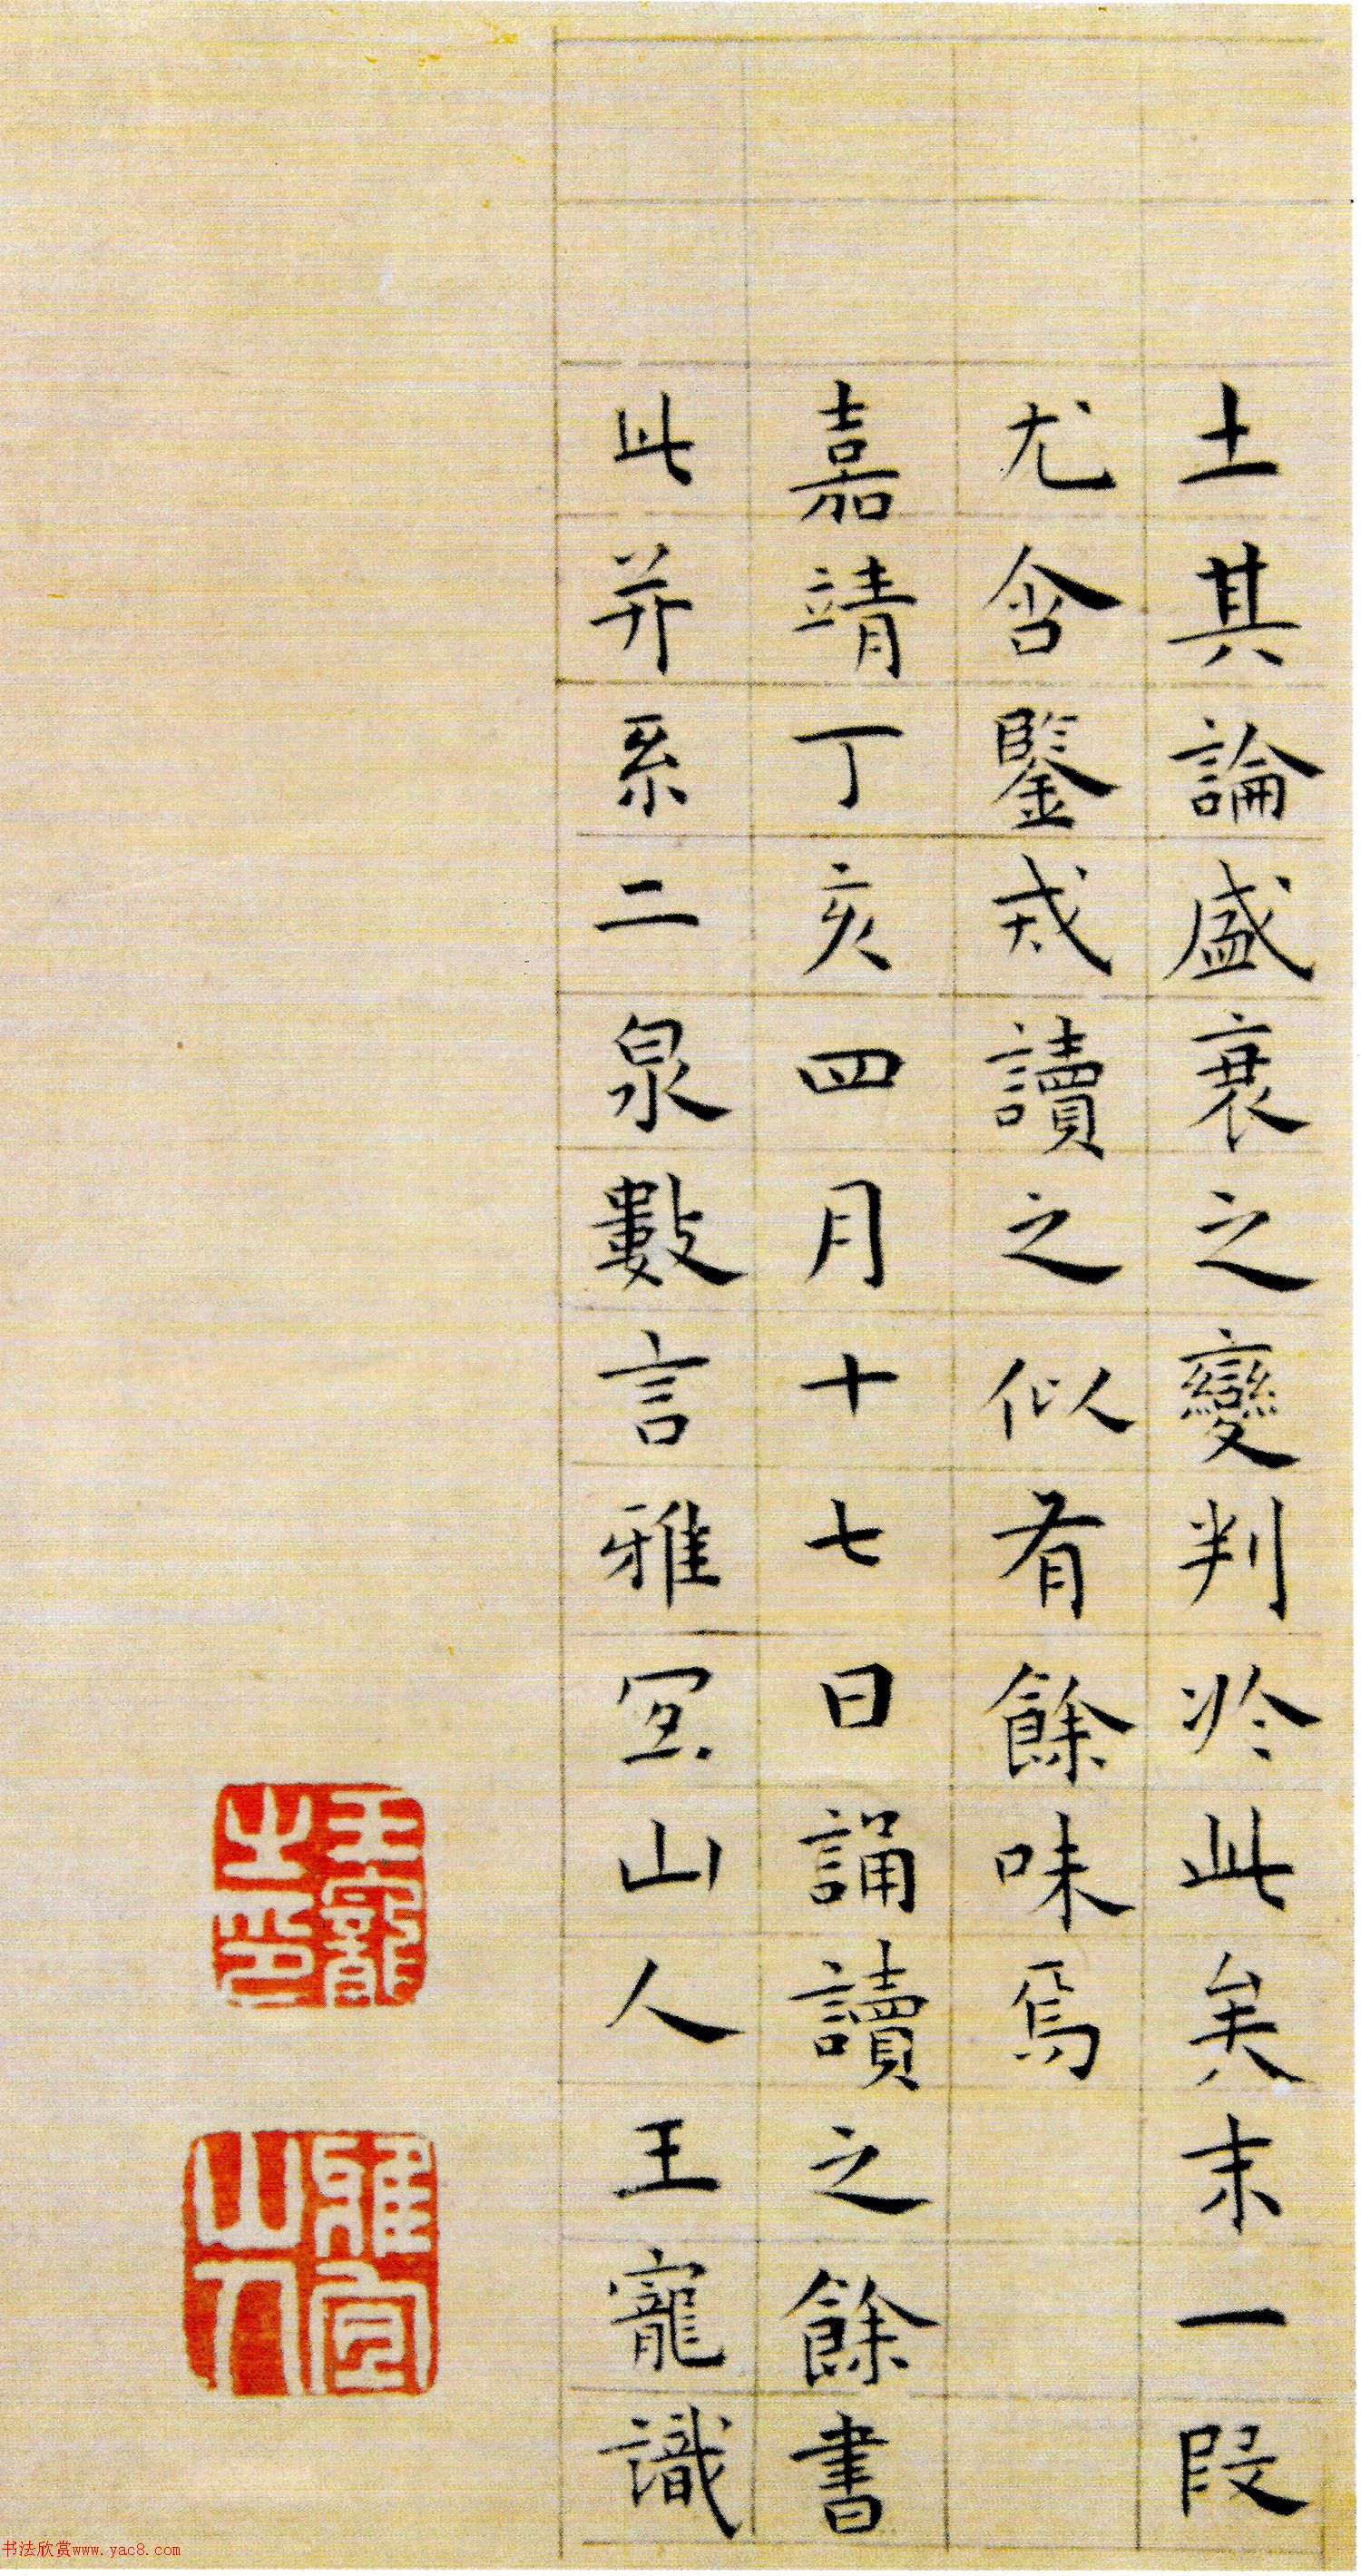 土其論盛衰之變判於此矣末一段
尤含鑒戒讀之似有餘味焉
嘉靖丁亥四月十七日誦讀之餘書
此并系二泉數言雅宜山人王寵識
王寵之印
雅宜山人
书法欣赏www.yac8.com